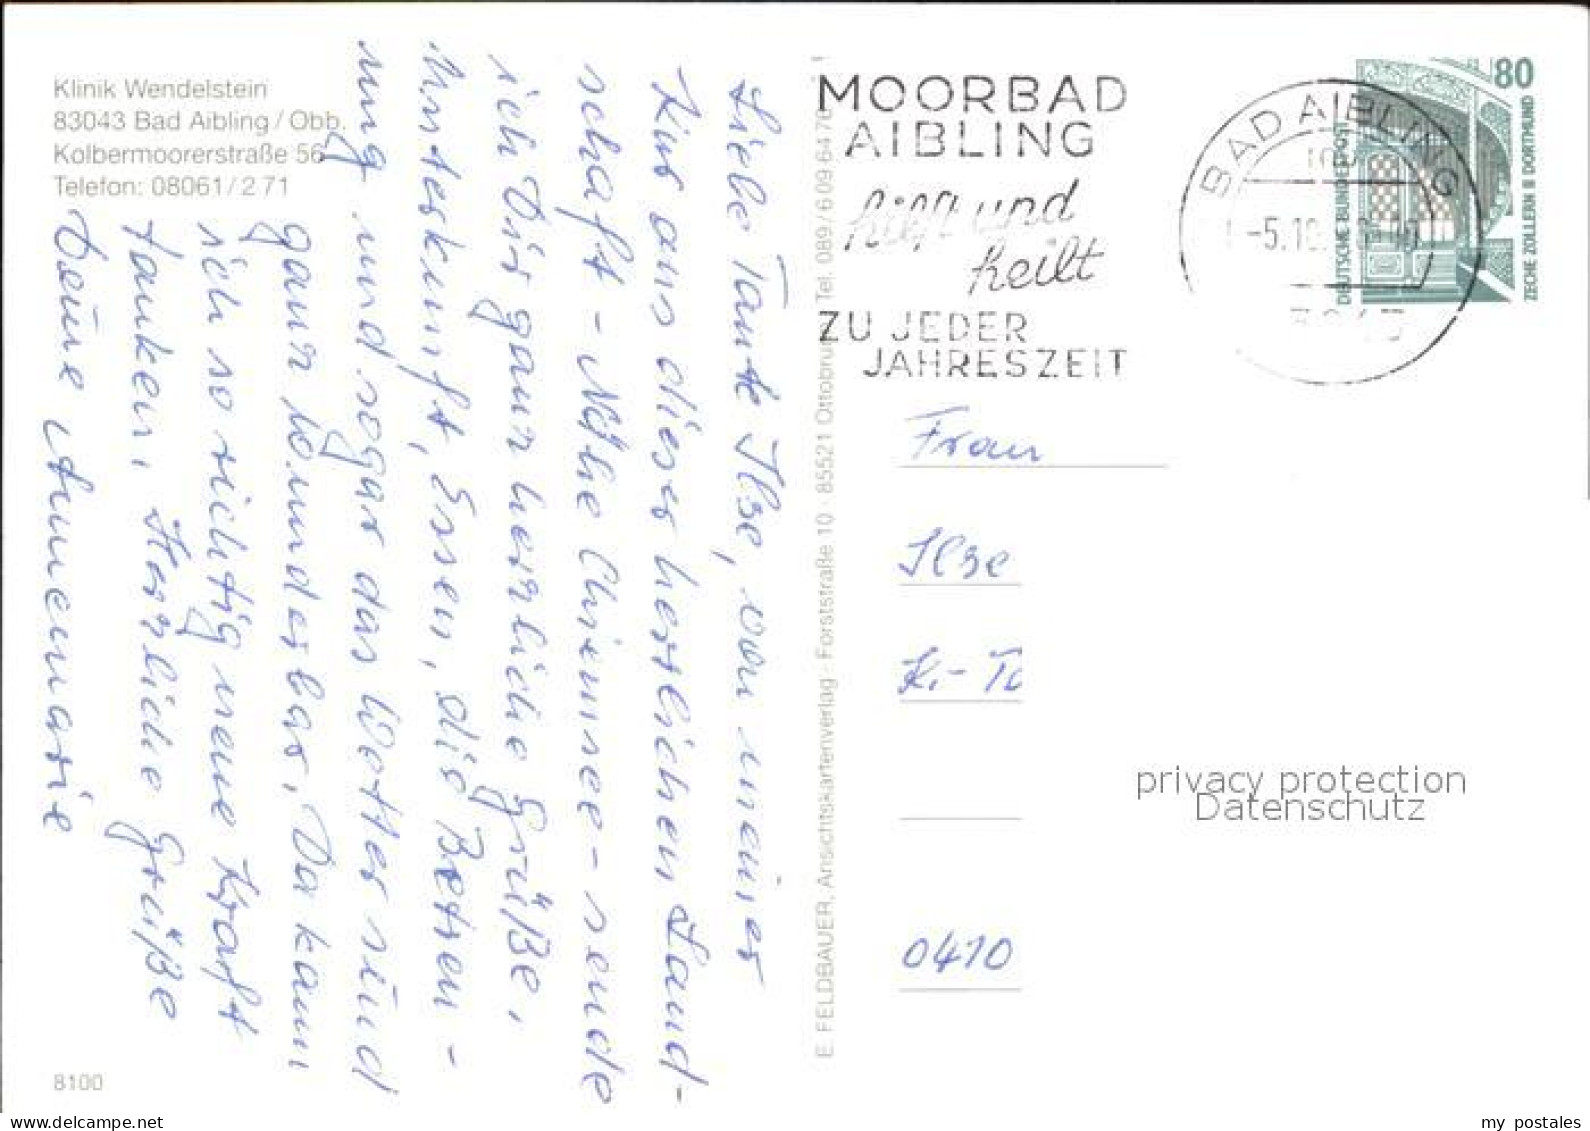 Klinik Wendelstein
83043 Bad Aibling / Obb.
Kolbermoorerstraße 56
Telefon: 08061 / 2 71
Liebe Tante Ilse, von meiner
Kur aus dieser herrlichen Land-
schaft - Nähe Chiemsee - sende
ich Dir ganz herzliche Grüße,
Unterkunft, Essen, die Betreu-
ung und sogar das Wetter sind
ganz wunderbar, Da kann
ich so richtig neue Kraft
tanken. Herzliche Grüße
Deine Annemarie
8100
E. FELDBAUER, Ansichtskartenverlag · Forststraße 10 · 85521 Ottobrunn Tel. 089 / 6 09 64 70
MOORBAD
AIBLING
hilft und
heilt
ZU JEDER
JAHRESZEIT
BAD AIBLING
-5.10.
80
DEUTSCHE BUNDESPOST
ZECHE ZOLLERN II DORTMUND
Frau
Ilse
K.-
0410
privacy protection
Datenschutz
delcampe.net
my postales